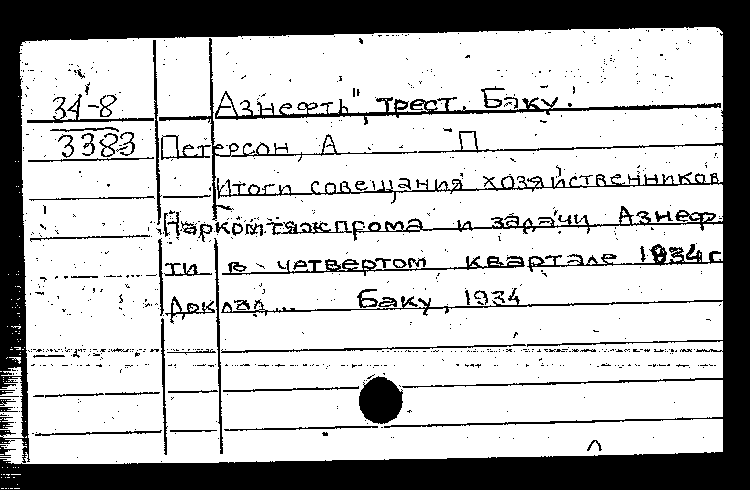 34-8 Азнефть", трест. Баку.
3383 Петерсон, А П
Итоги совещания хозяйственников
Наркомтяжпрома и задачи Азнеф-
ти в четвертом квартале 1934 г
Доклад... Баку, 1934